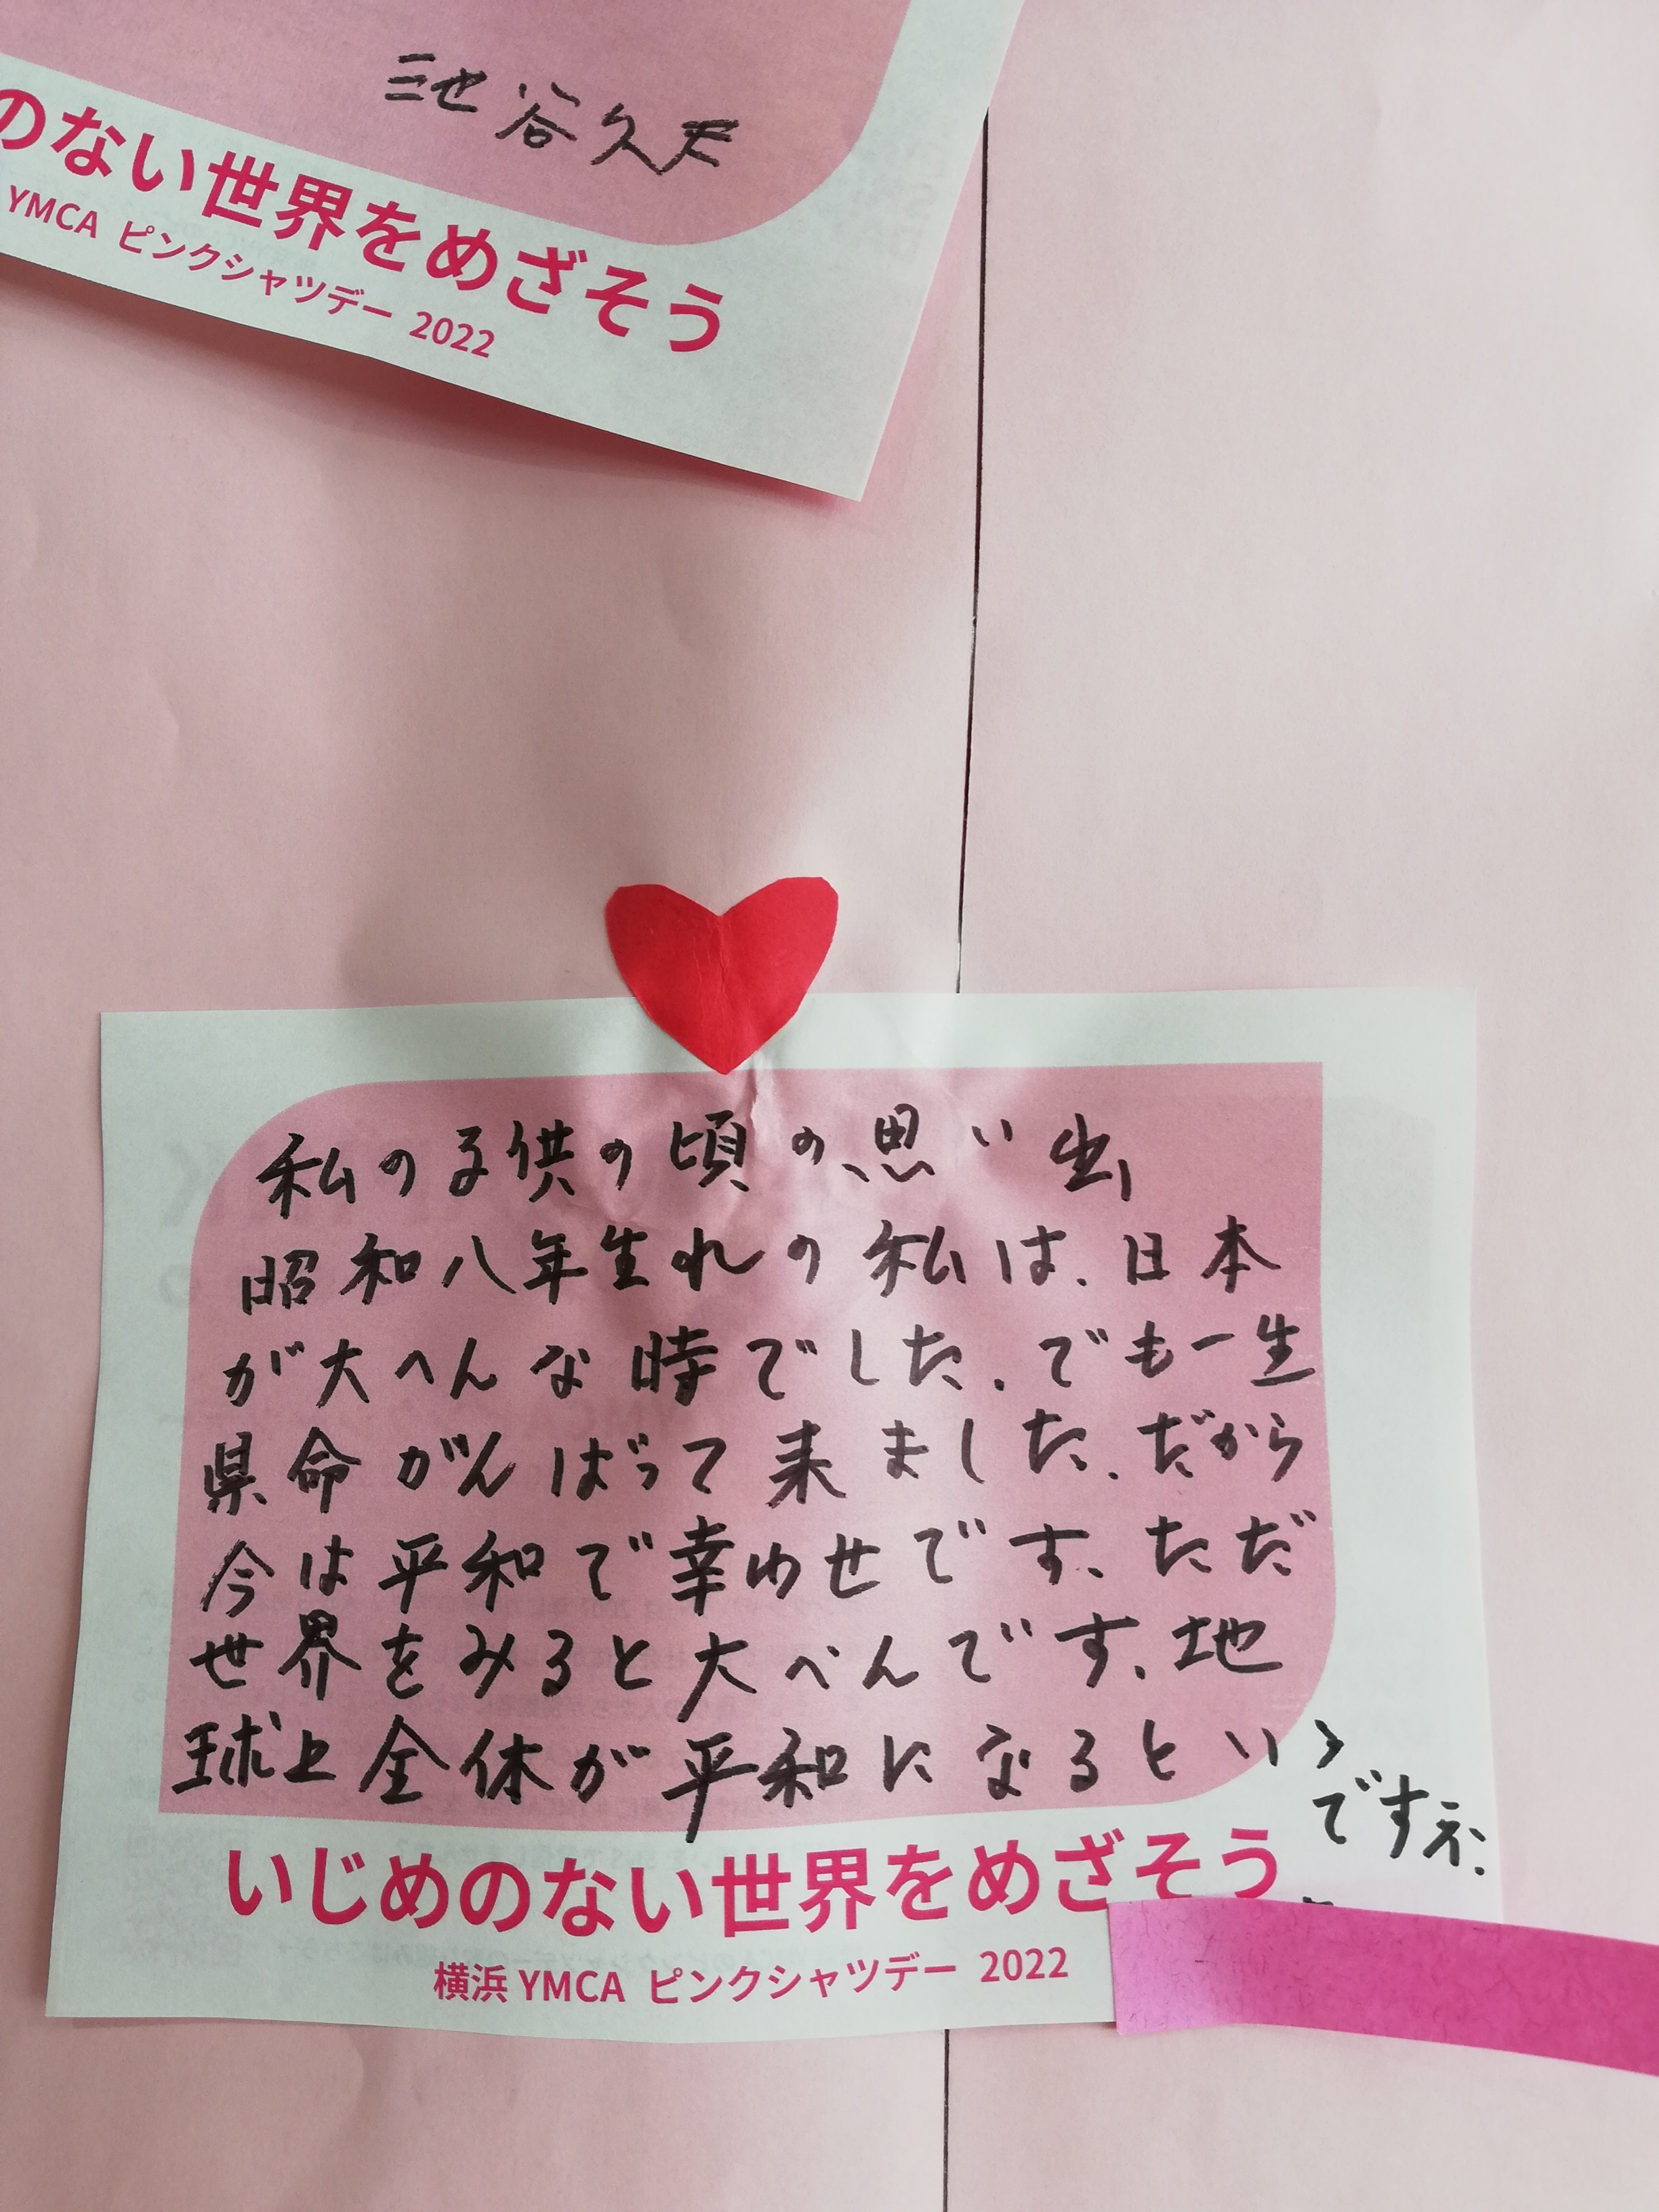 池谷久
のない世界をめざそう
YMCA ピンクシャツデー 2022
私の子供の頃の思い出
昭和八年生れの私は、日本
が大へんな時でした。でも一生
県命がんばって来ました。だから
今は平和で幸わせです、ただ
世界をみると大へんです、地
球上全体が平和になるといゝ
ですネ。
いじめのない世界をめざそう
横浜 YMCA ピンクシャツデー 2022